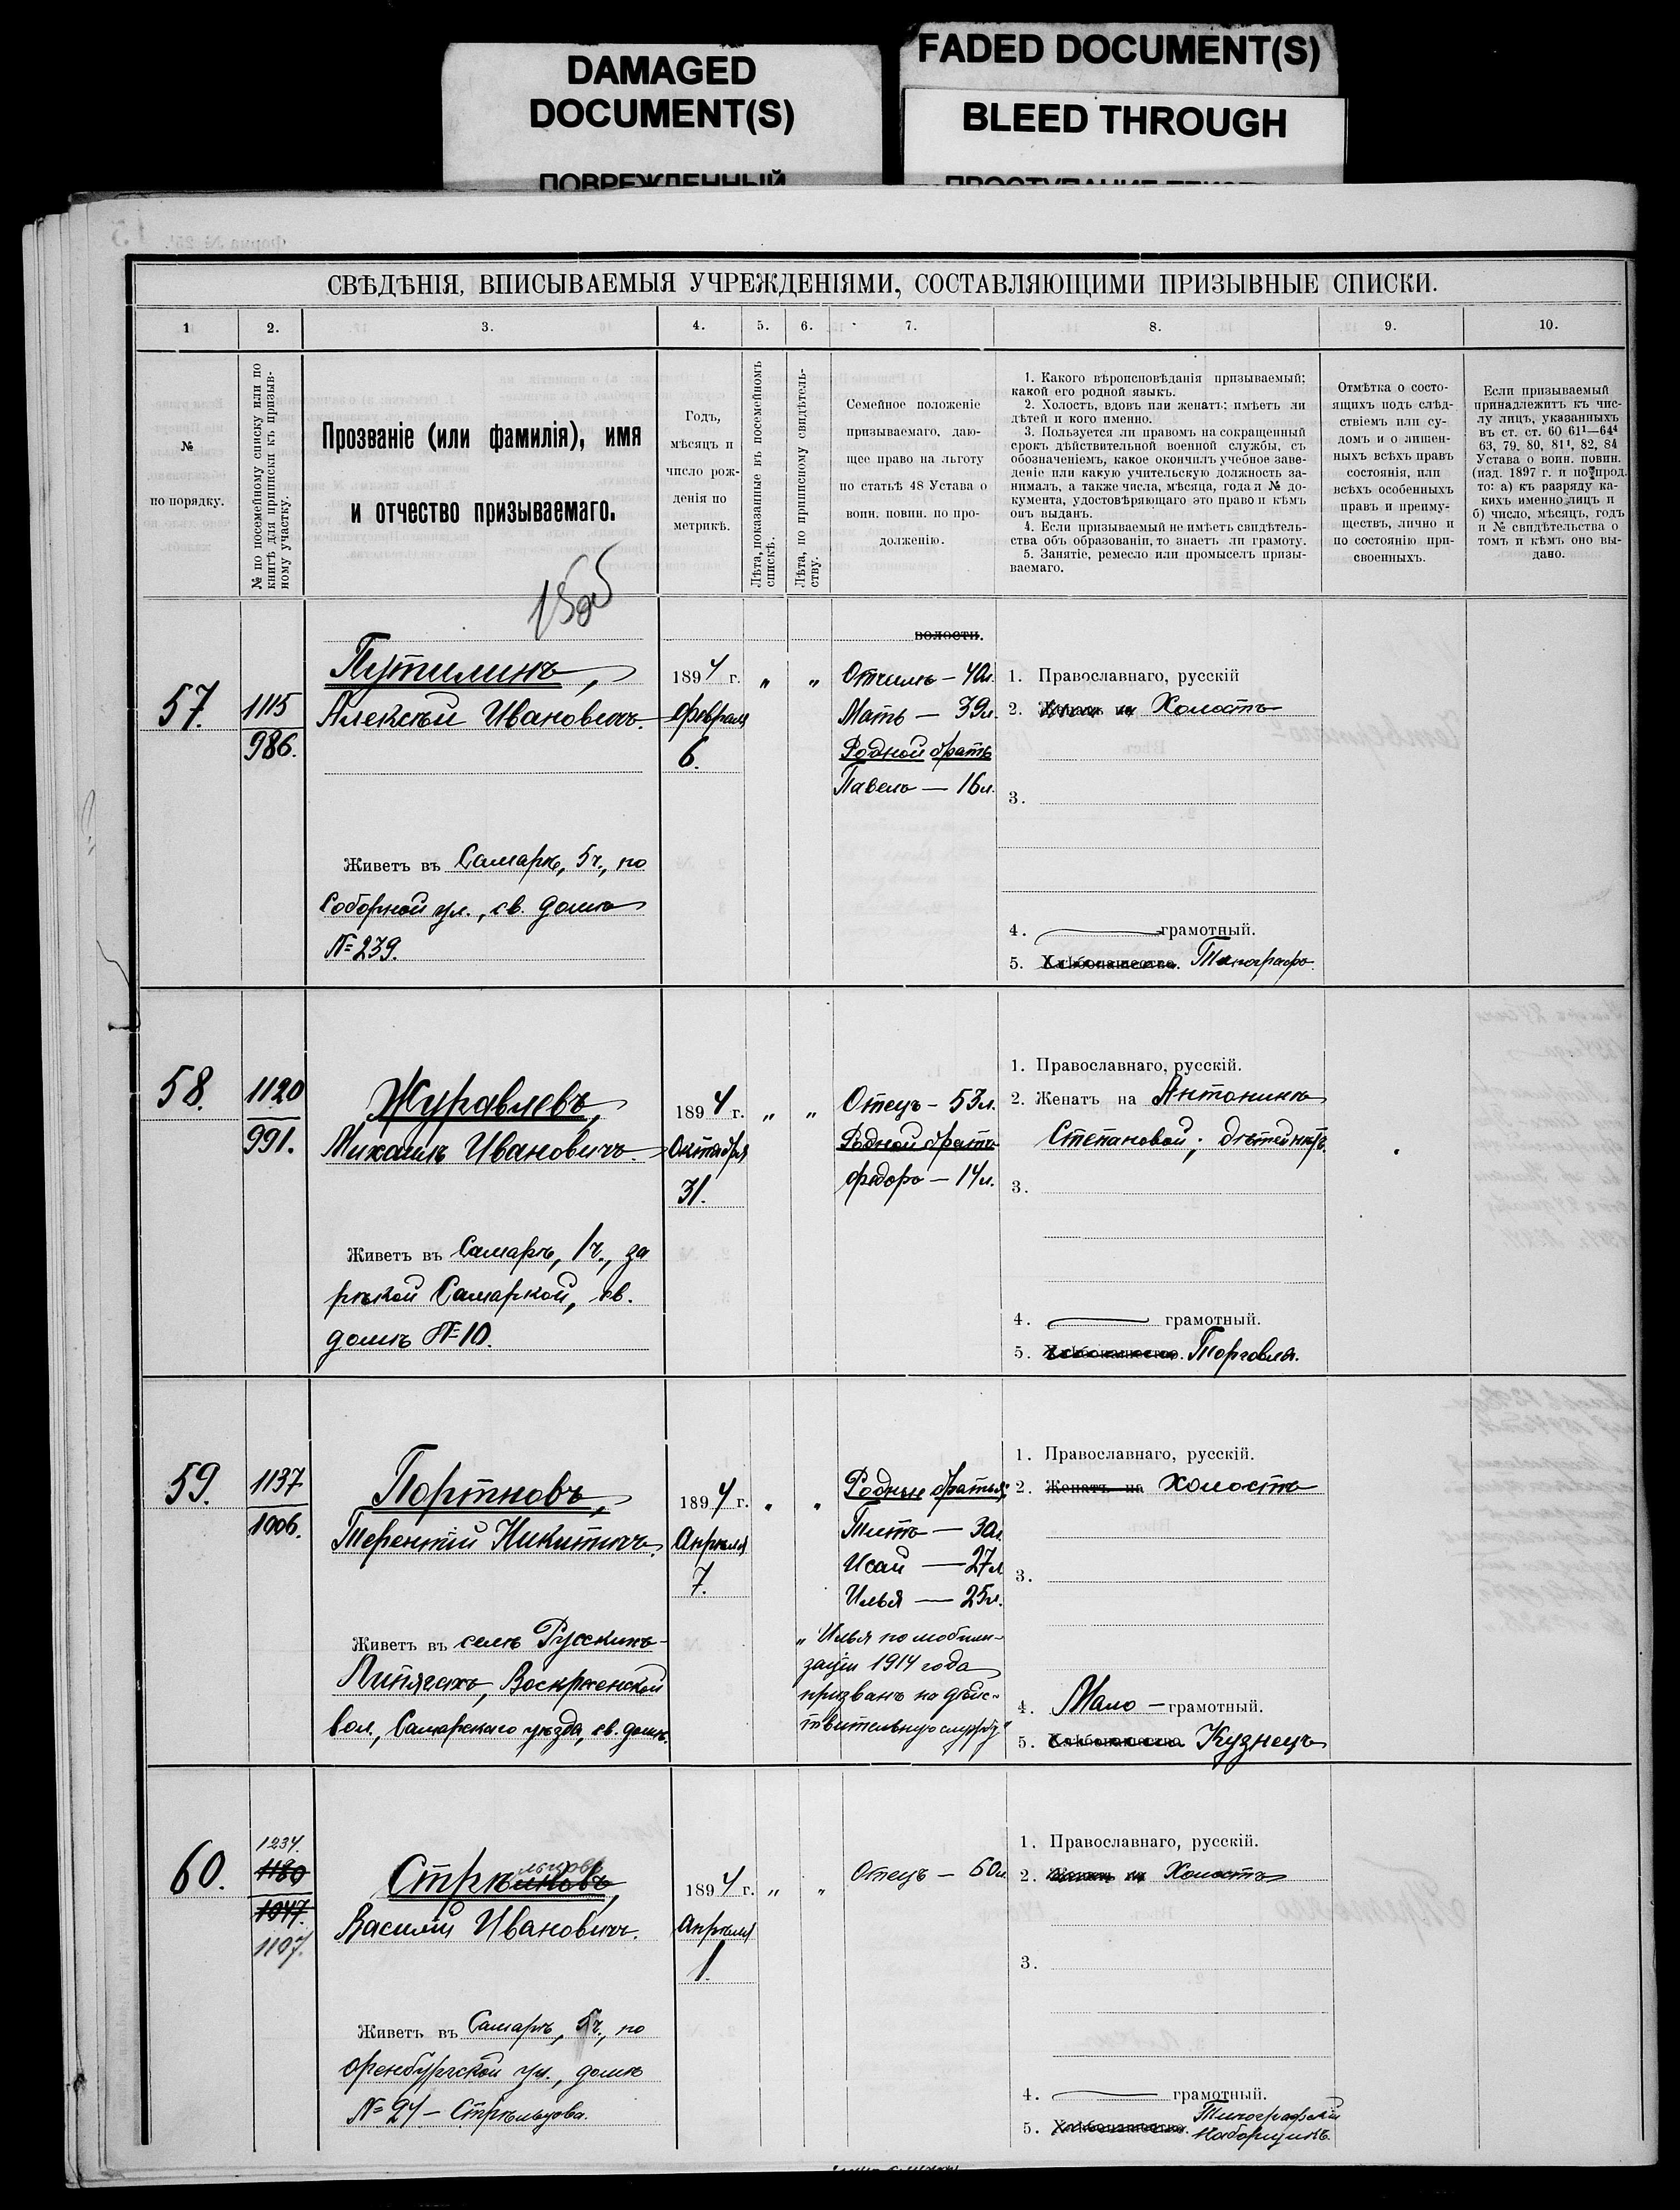 DAMAGED
DOCUMENT(S)
ПОВРЕЖДЕННЫЙ
FADED DOCUMENT(S)
BLEED THROUGH
СВѢДѢНІЯ, ВПИСЫВАЕМЫЯ УЧРЕЖДЕНІЯМИ, СОСТАВЛЯЮЩИМИ ПРИЗЫВНЫЕ СПИСКИ.
1 2. 3. 4. 5. 6. 7. 8. 9. 10.
№
по порядку.
№ по посемейному списку или по
книгѣ для приписки къ призыв-
ному участку.
Прозваніе (или фамилія), имя
и отчество призываемаго.
Годъ,
мѣсяцъ и
число рож-
денія по
метрикѣ.
Лѣта, показанные въ посемейномъ
спискѣ.
Лѣта, по приписному свидѣтель-
ству.
Семейное положеніе
призываемаго, даю-
щее право на льготу
по статьѣ 48 Устава о
воин. повин. по про-
долженію.
1. Какого вѣроисповѣданія призываемый;
какой его родной языкъ.
2. Холостъ, вдовъ или женатъ; имѣетъ ли
дѣтей и кого именно.
3. Пользуется ли правомъ на сокращенный
срокъ дѣйствительной военной службы, съ
обозначеніемъ, какое окончилъ учебное заве-
деніе или какую учительскую должность за-
нималъ, а также числа, мѣсяца, года и № до-
кумента, удостовѣряющаго это право и кѣмъ
онъ выданъ.
4. Если призываемый не имѣетъ свидѣтель-
ства объ образованіи, то знаетъ ли грамоту.
5. Занятіе, ремесло или промыселъ призы-
ваемаго.
Отмѣтка о состо-
ящихъ подъ слѣд-
ствіемъ или су-
домъ и о лишен-
ныхъ всѣхъ правъ
состоянія, или
всѣхъ особенныхъ
правъ и преиму-
ществъ, лично и
по состоянію при-
своенныхъ.
Если призываемый
принадлежитъ къ чис-
лу лицъ, указанныхъ
въ ст. ст. 60 61¹—64⁴
63, 79. 80, 81¹, 82, 84
Устава о воин. повин.
(изд. 1897 г. и по прод.
то: а) къ разряду ка-
кихъ именно лицъ и
б) число, мѣсяцъ, годъ
и № свидѣтельства о
томъ и кѣмъ оно вы-
дано.
волости.
57.
1115
986.
Путилинъ,
Алексѣй Ивановичъ.
Живетъ въ Самарѣ, 5ч., по
Соборной ул., св. домъ
№ 239.
1894 г.
Февраля
6.
" "
Отчимъ — 42л.
Мать — 39л.
Родной братъ
Павелъ — 16л.
1. Православнаго, русскій
2. Холостъ
3.
4. грамотный.
5. Хлѣбопашество.
58.
1120
991.
Журавлевъ,
Михаилъ Ивановичъ.
Живетъ въ Самарѣ, 1ч., за
рѣкой Самаркой, св.
домъ № 10.
1894 г.
Октября
31.
" "
Отецъ — 53л.
Родной братъ
Федоръ — 14л.
1. Православнаго, русскій.
2. Женатъ на Антонинѣ
Степановой; дѣтей нѣтъ.
3.
4. грамотный.
5. Хлѣбопашество. Торговля.
59.
1137
1006.
Портновъ,
Терентій Никитичъ.
Живетъ въ селѣ Русскихъ-
Липягахъ, Воскресенской
вол., Самарскаго уѣзда, св. домъ.
1894 г.
Апрѣля
7.
" "
Родные братья:
Титъ — 30л.
Исай — 27л.
Илья — 25л.
"Илья по мобили-
заціи 1914 года
призванъ на дѣйс-
твительную службу"
1. Православнаго, русскій.
2. Женатъ на Холостъ
3.
4. Мало — грамотный.
5. Хлѣбопашество. Кузнецъ
60.
1234.
1180
1047.
1107.
Василій Ивановичъ.
Живетъ въ Самарѣ, 5ч., по
Оренбургской ул., домъ
№ 24 — Стрѣльцова.
1894 г.
Апрѣля
1.
" "
Отецъ — 60л.
1. Православнаго, русскій.
2. Холостъ
3.
4. грамотный.
5. Хлѣбопашество. Типографскій
наборщикъ.